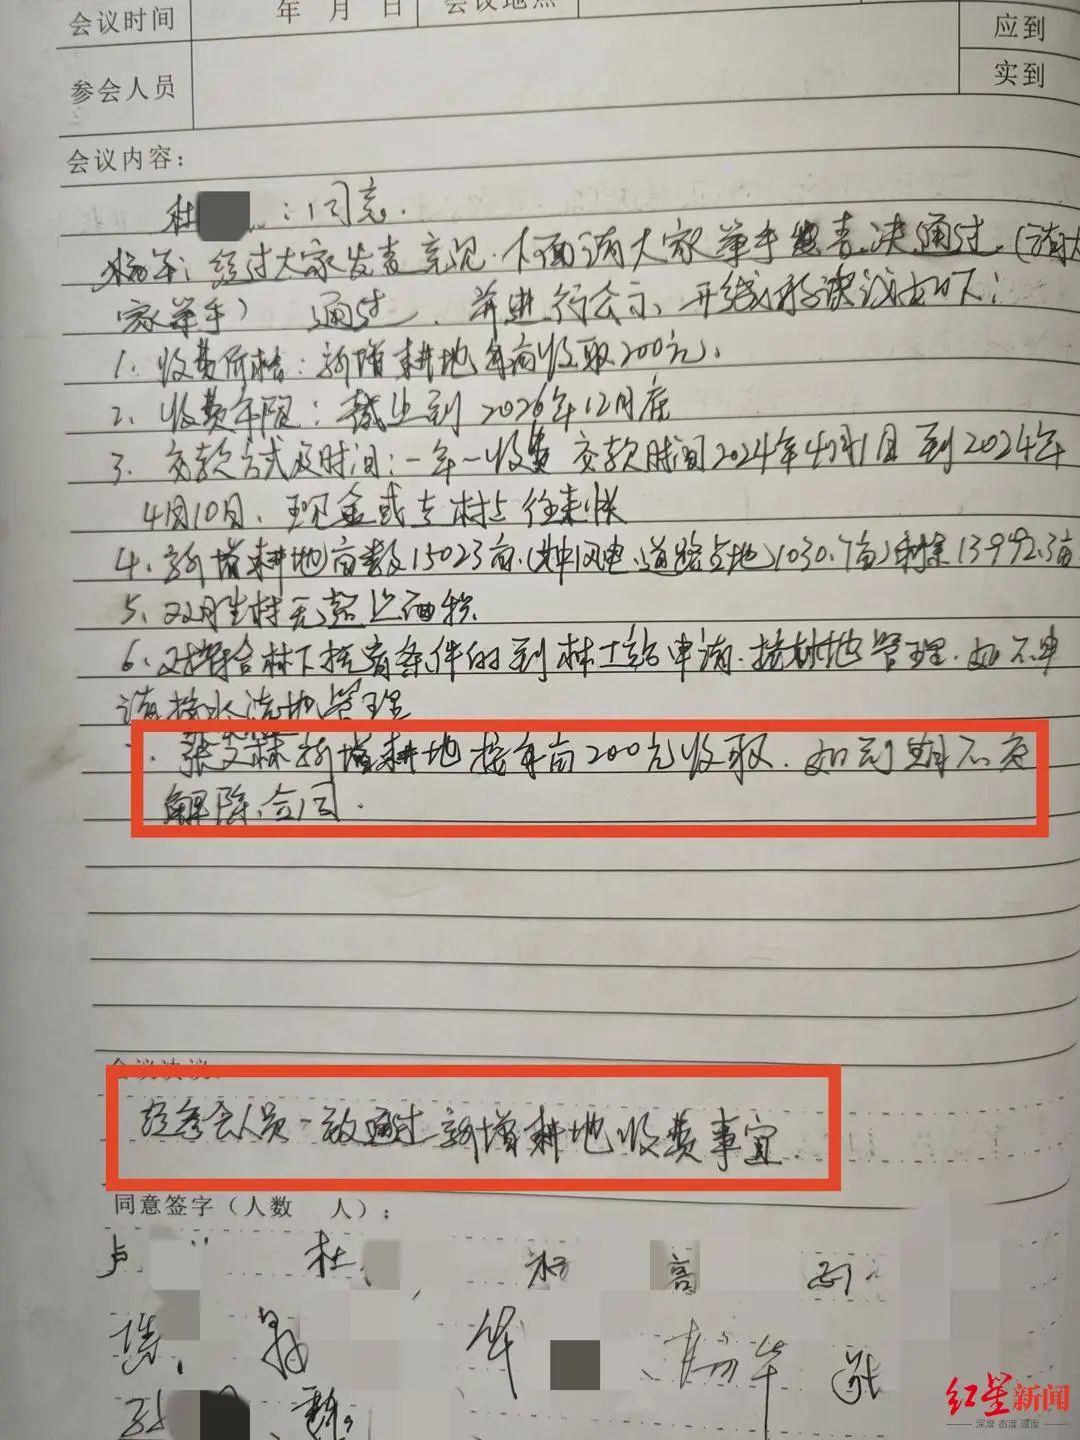 会议时间 年 月 日 会议地点
应到
参会人员 实到
会议内容：
杜 ：同意.
杨华：经过大家发表意见.下面请大家举手表决通过.(请大
家举手) 通过. 并进行公示、形成决议如下：
1、收费价格：新增耕地每亩收取200元.
2、收费年限：截止到2026年12月底
3、交款方式及时间：一年一收费 交款时间2024年4月1日到2024年
4月10日、现金或专村上往来账
4、新增耕地亩数15023亩.(其中风电、道路占地)1030.7亩)剩余13992.3亩
5、双胜村无争议面积
6、对符合林下抚育条件的到林工站申请.按林地管理.如不申
请按水浇地管理
张文林新增耕地按每亩200元收取.如到期不交
解除合同.
会议决议：
经参会人员一致通过新增耕地收费事宜.
同意签字（人数 人）：
卢 杜 杨 高
华 杨华 张
红星新闻
深度 态度 温度